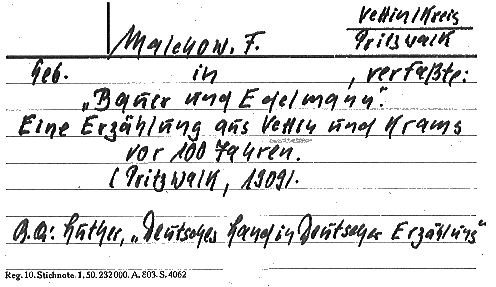 Vettin/Kreis
Malchow, F. Pritzwalk
Geb. in , verfaßte:
„Bauer und Edelmann".
Eine Erzählung aus Vettin und Krams
vor 100 Jahren.
(Pritzwalk, 1909).
Luther, „Deutsches Land in Deutscher Erzählung"
Reg. 10. Stichnote. 1, 50. 232000. A. 803. S. 4062